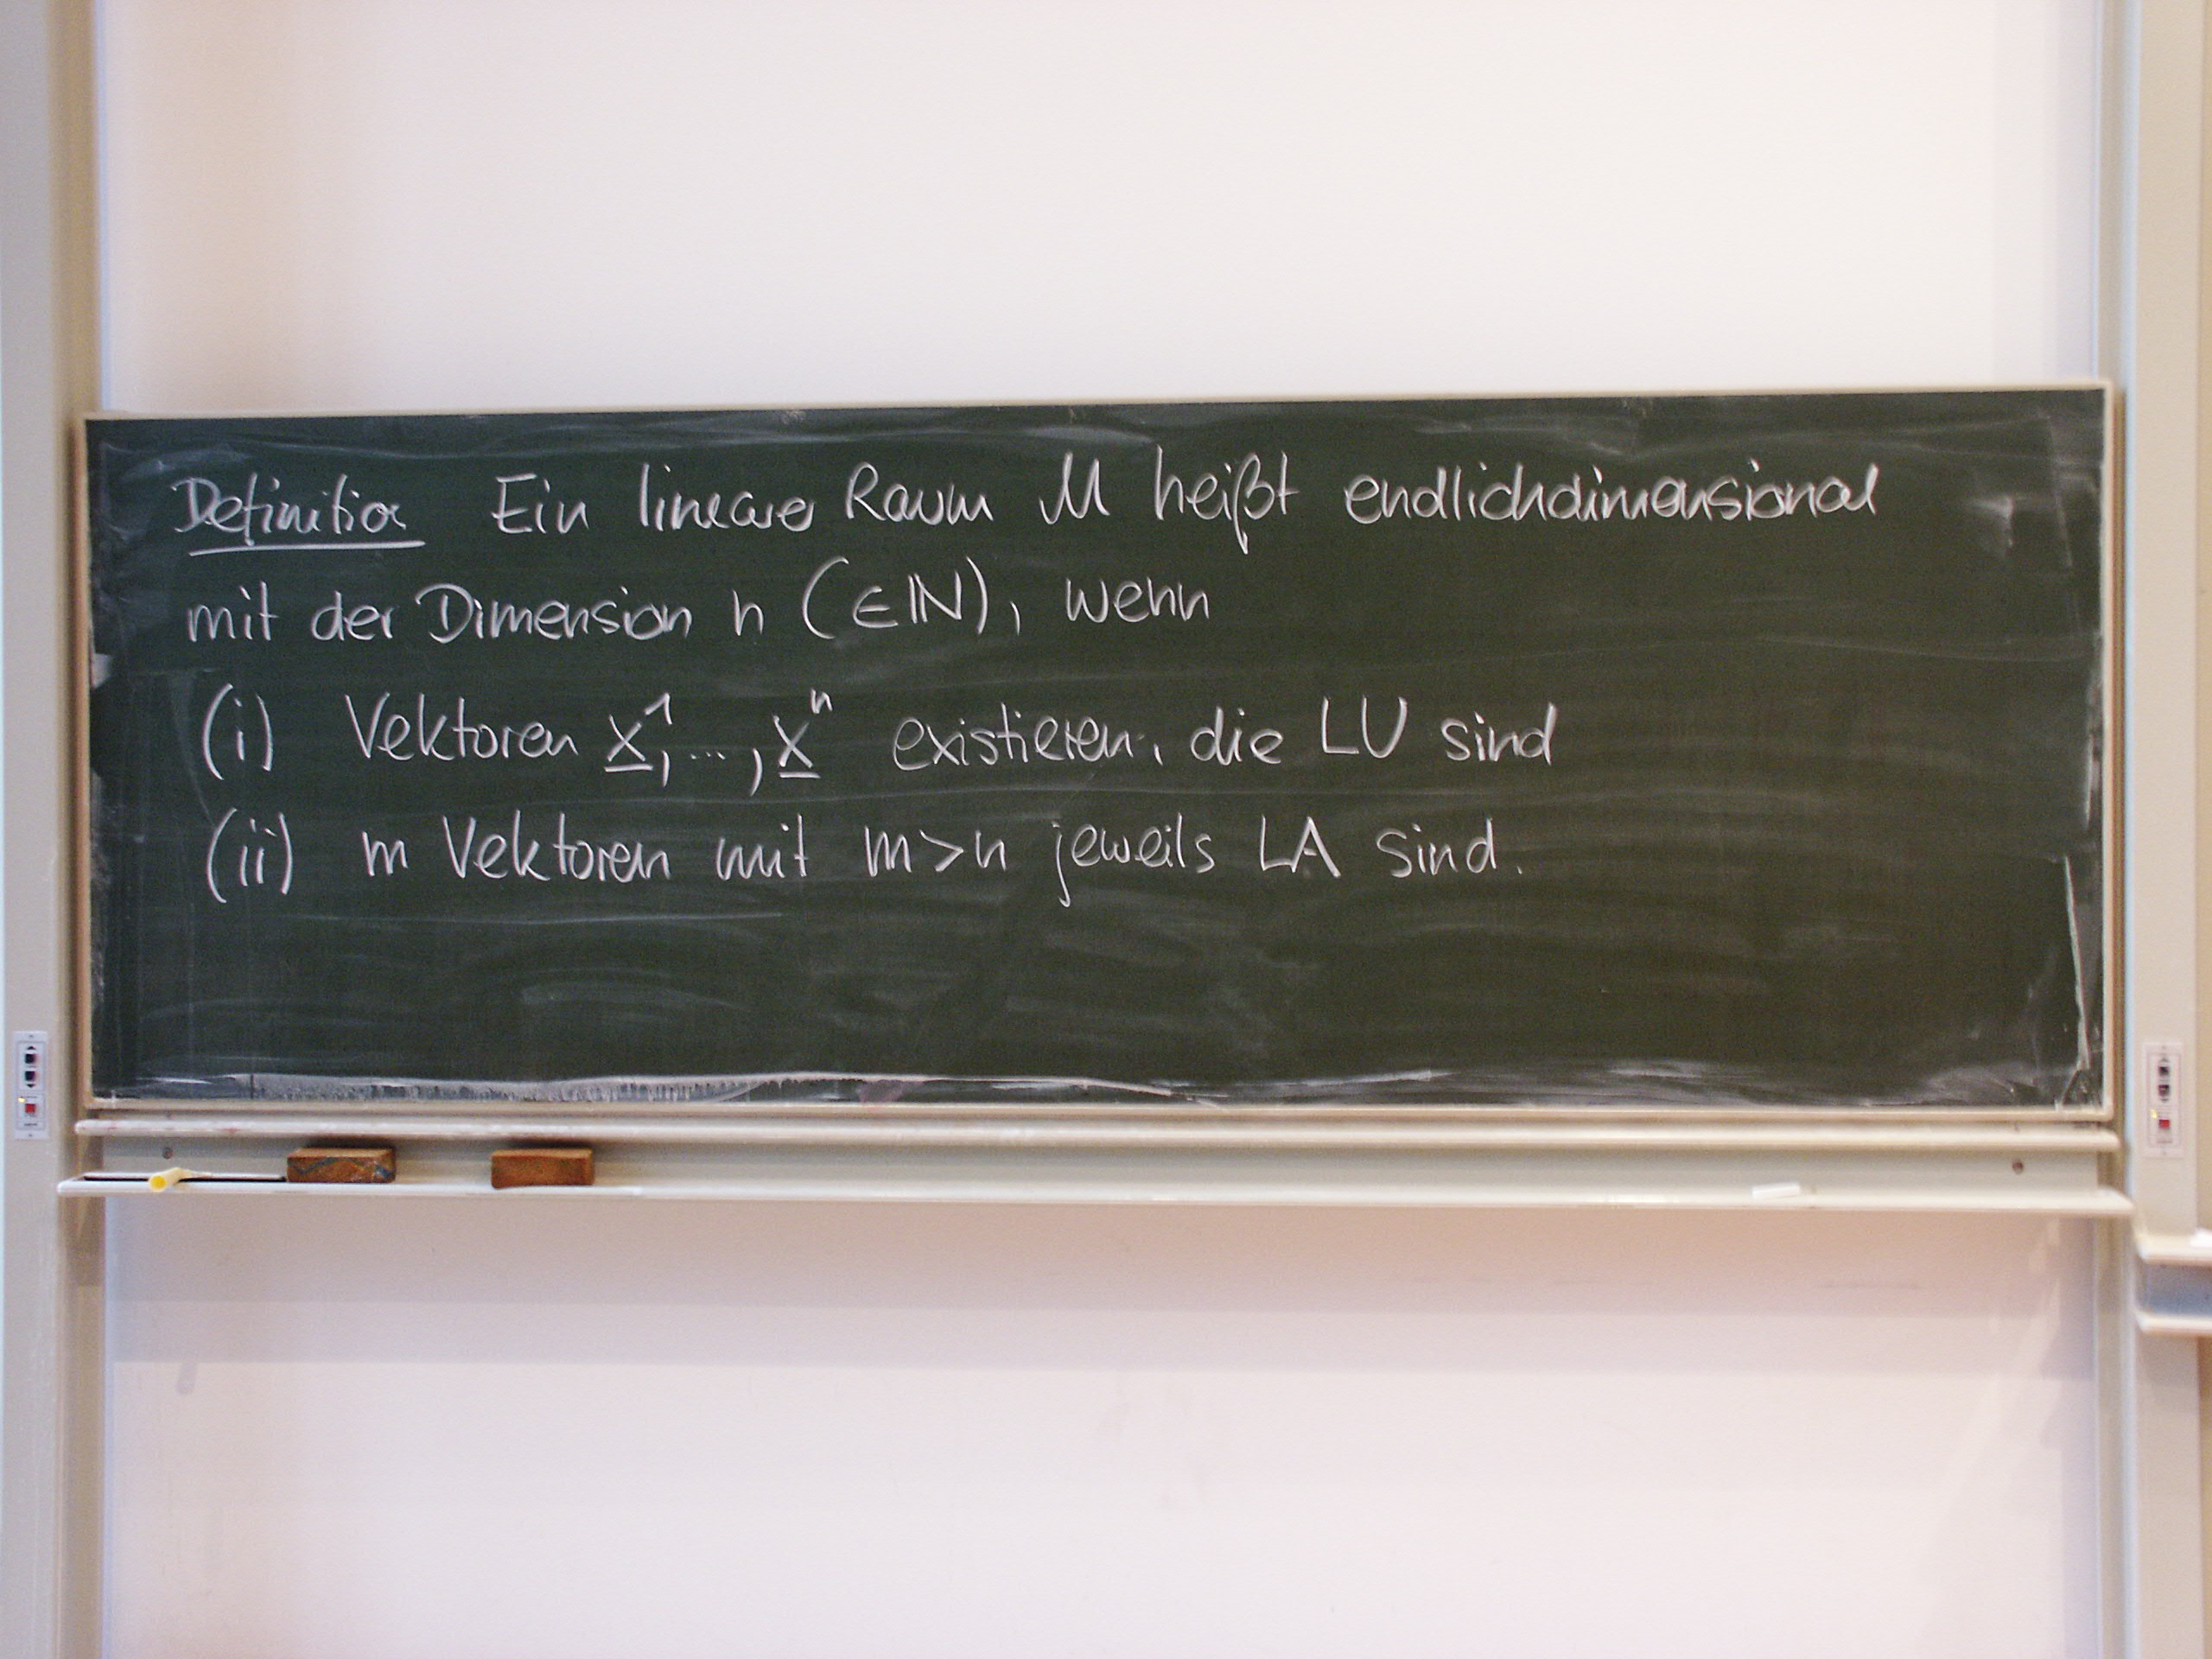 Definition Ein linearer Raum M heißt endlichdimensional
mit der Dimension n (∈ℕ), wenn
(i) Vektoren x̲¹, ..., x̲ⁿ existieren, die LU sind
(ii) m Vektoren mit m>n jeweils LA sind.